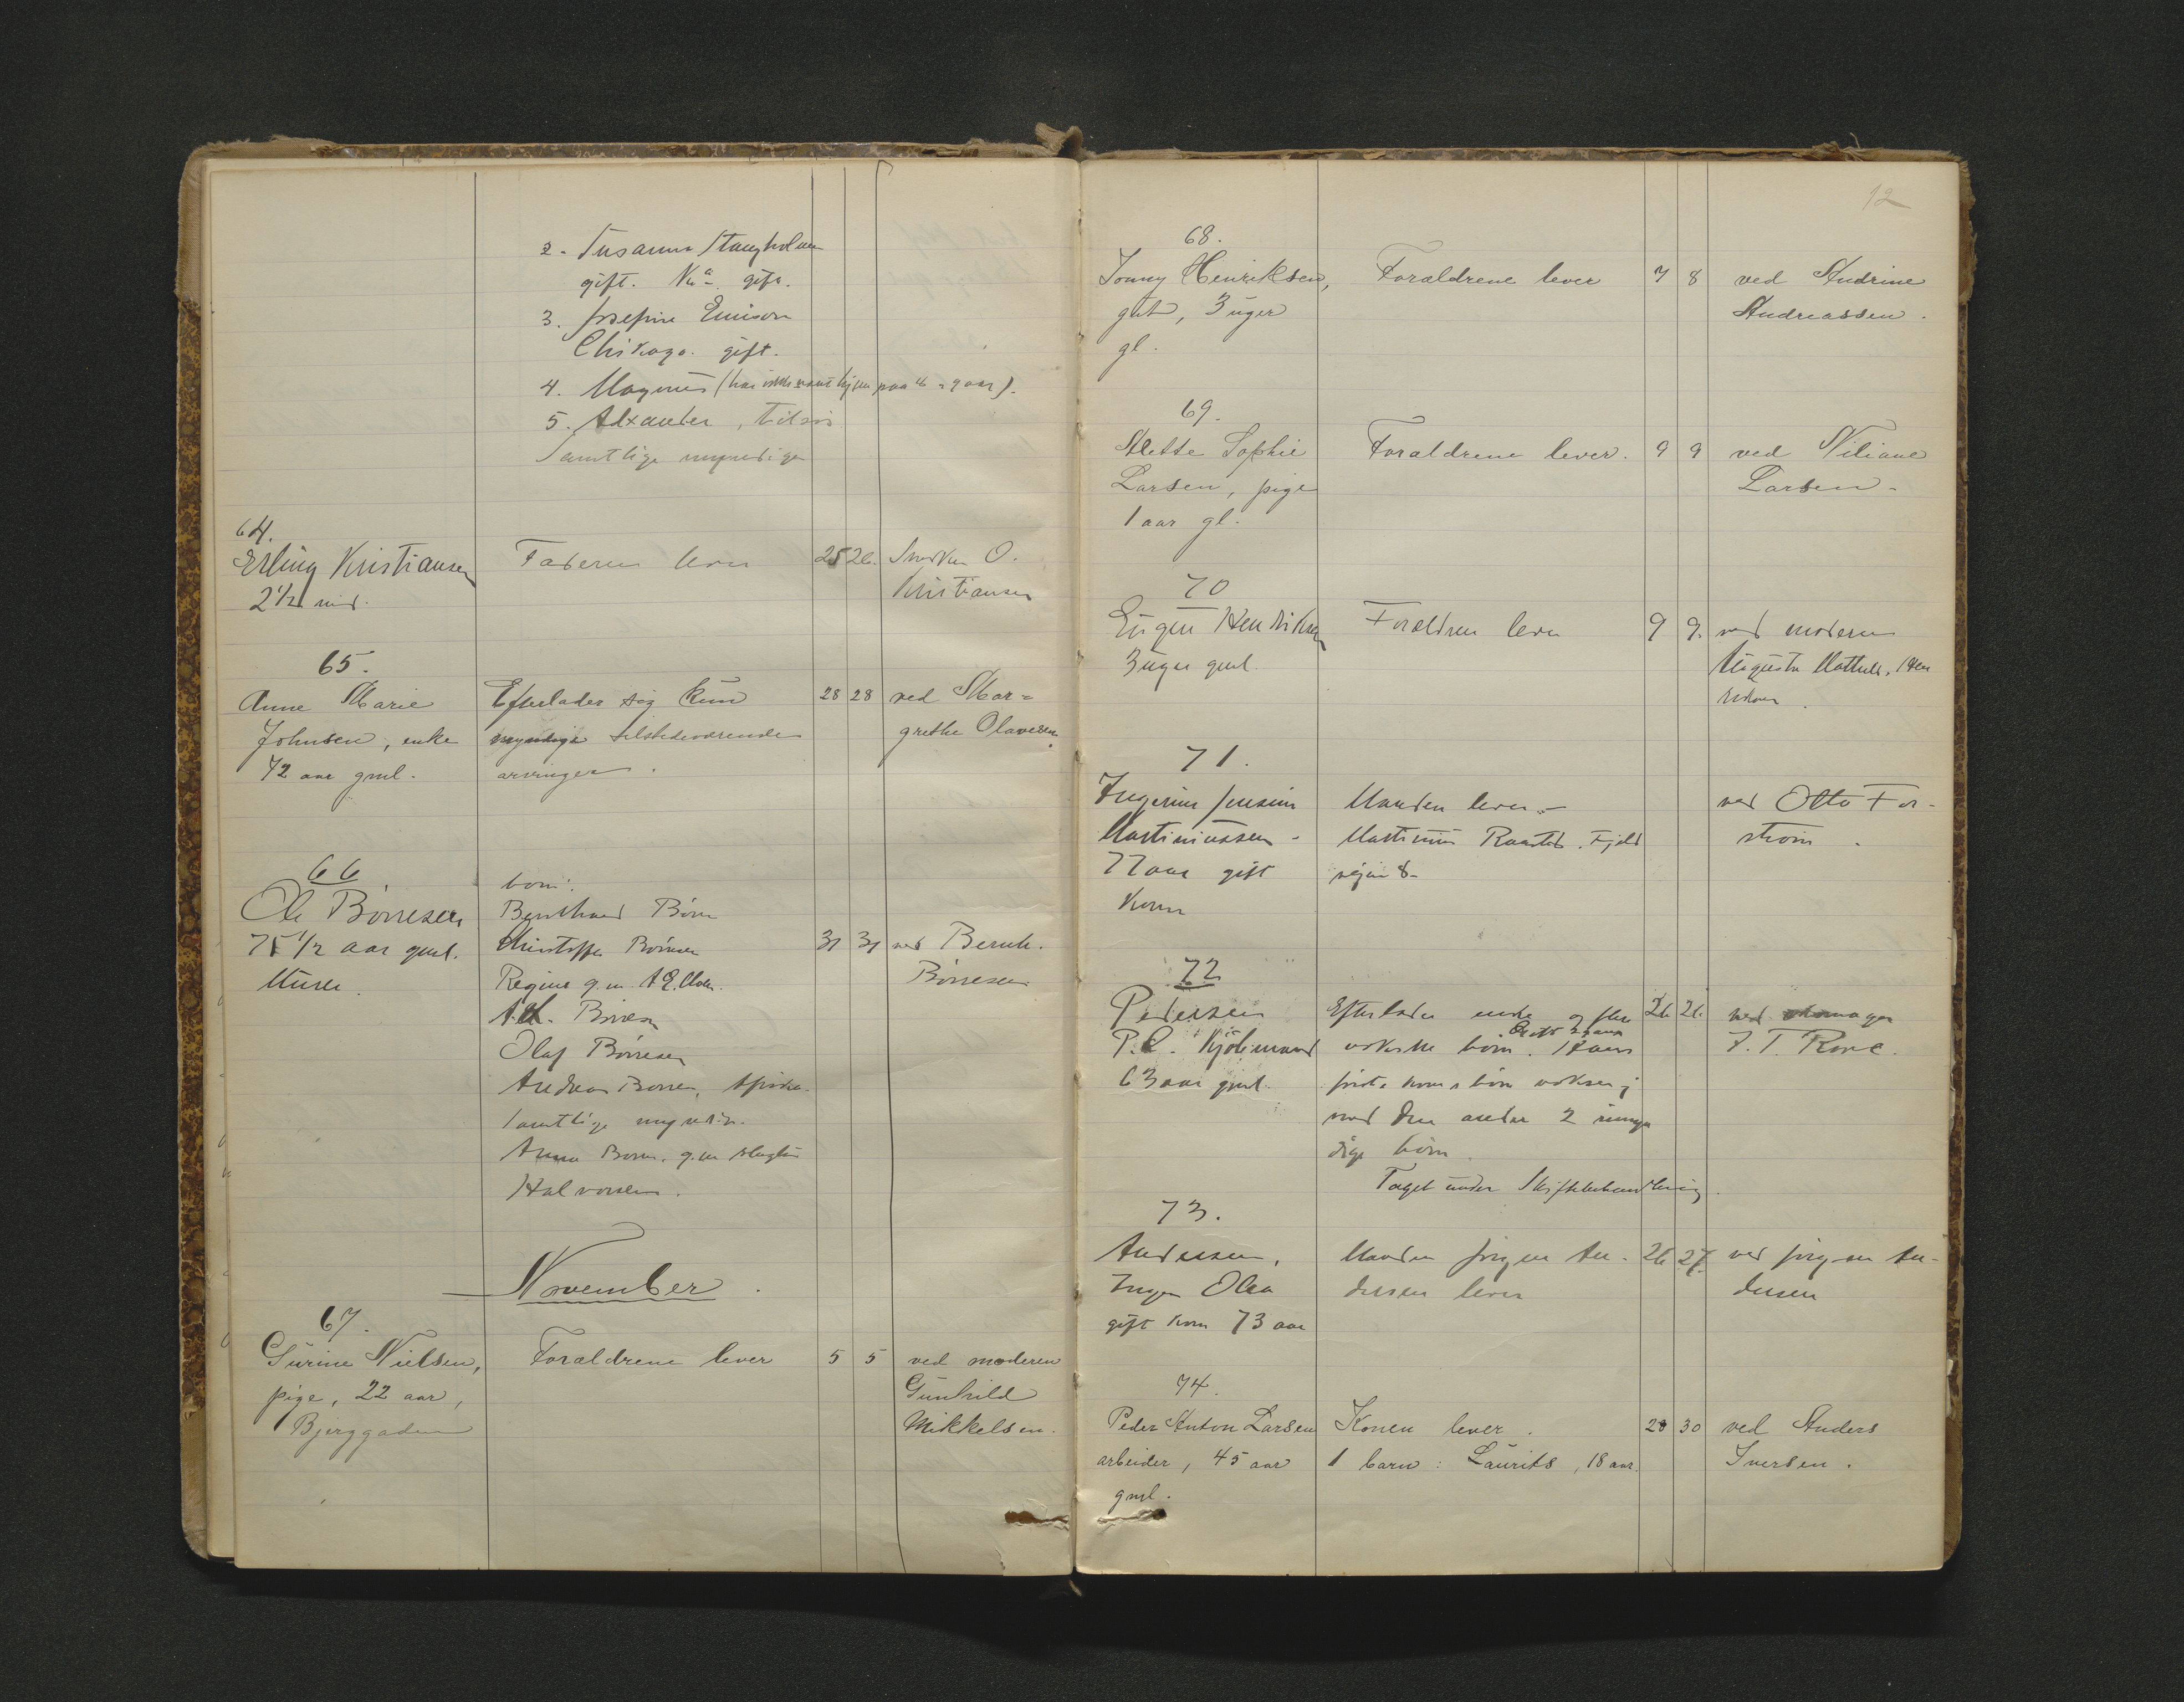 2. Susanna Stangholm
gift. gift.
3. Josefine Enison
Chikago. gift.
4. Magnus (har ikke været hjem paa 8 a 9 aar).
5. Alexander, tilsiøs
Samtlige myndige
64.
Erling Kristiansen
2 1/2 md.
Faderen lever
25 26.
Snedker O.
Kristiansen
65.
Anne Marie
Johnsen, enke
72 aar gml.
Efterlader sig kun
myndige tilstedeværende
arvinger.
28 28
ved Mar=
grethe Olavesen.
66
Ole Börresen
75 1/2 aar gml.
Murer.
börn:
Bernhard Börre
Christoffer Börresen
Regine g.m.
Börresen
Olaf Börresen
Andreas Börre, Afrika.
samtlige myndige.
Anna Börre. g.m. slagter
Halvorsen.
31 31
ved Bernh.
Börresen
November.
67.
Gurine Nielsen,
pige, 22 aar,
Bjerggaden
Forældrene lever
5 5
ved moderen
Gunhild
Mikkelsen.
12
68.
Jonny Henriksen,
gut, 3 uger
gl.
Forældrene lever
7 8
ved Andrine
Andreassen.
69.
Mette Sophie
Larsen, pige
1 aar gl.
Forældrene lever.
9 9
ved Niliane
Larsen.
70
Eugen Hendriksen
3 uger gml.
Forældren lever
9 9.
ved moderen
Augusta Mathild. Hen
riksen.
71.
Ingerine Jensine
Martiniussen
77 aar gift
Kone
Manden lever.-
Martinius Raastad. Fjeld
vejen 8-
ved Otto For-
ström.
72
Pedersen
P. C. Kjölmand
63 aar gml.
Efterlader enke og flere
voksne börn.
förste kones börn voksne;
med den anden 2 umyn
dige börn.
Taget under Skiftebehandling.
26 26.
ved
J. T. Rove.
73.
Andersen,
Inger Olea
gift kone 73 aar
Manden Jörgen An-
dersen lever
26 27.
ved Jörgen An-
dersen
74.
Peder Anton Larsen
arbeider, 45 aar
gml.
Konen lever.
1 barn: Laurits, 18 aar.
28 30
ved Anders
Iversen.